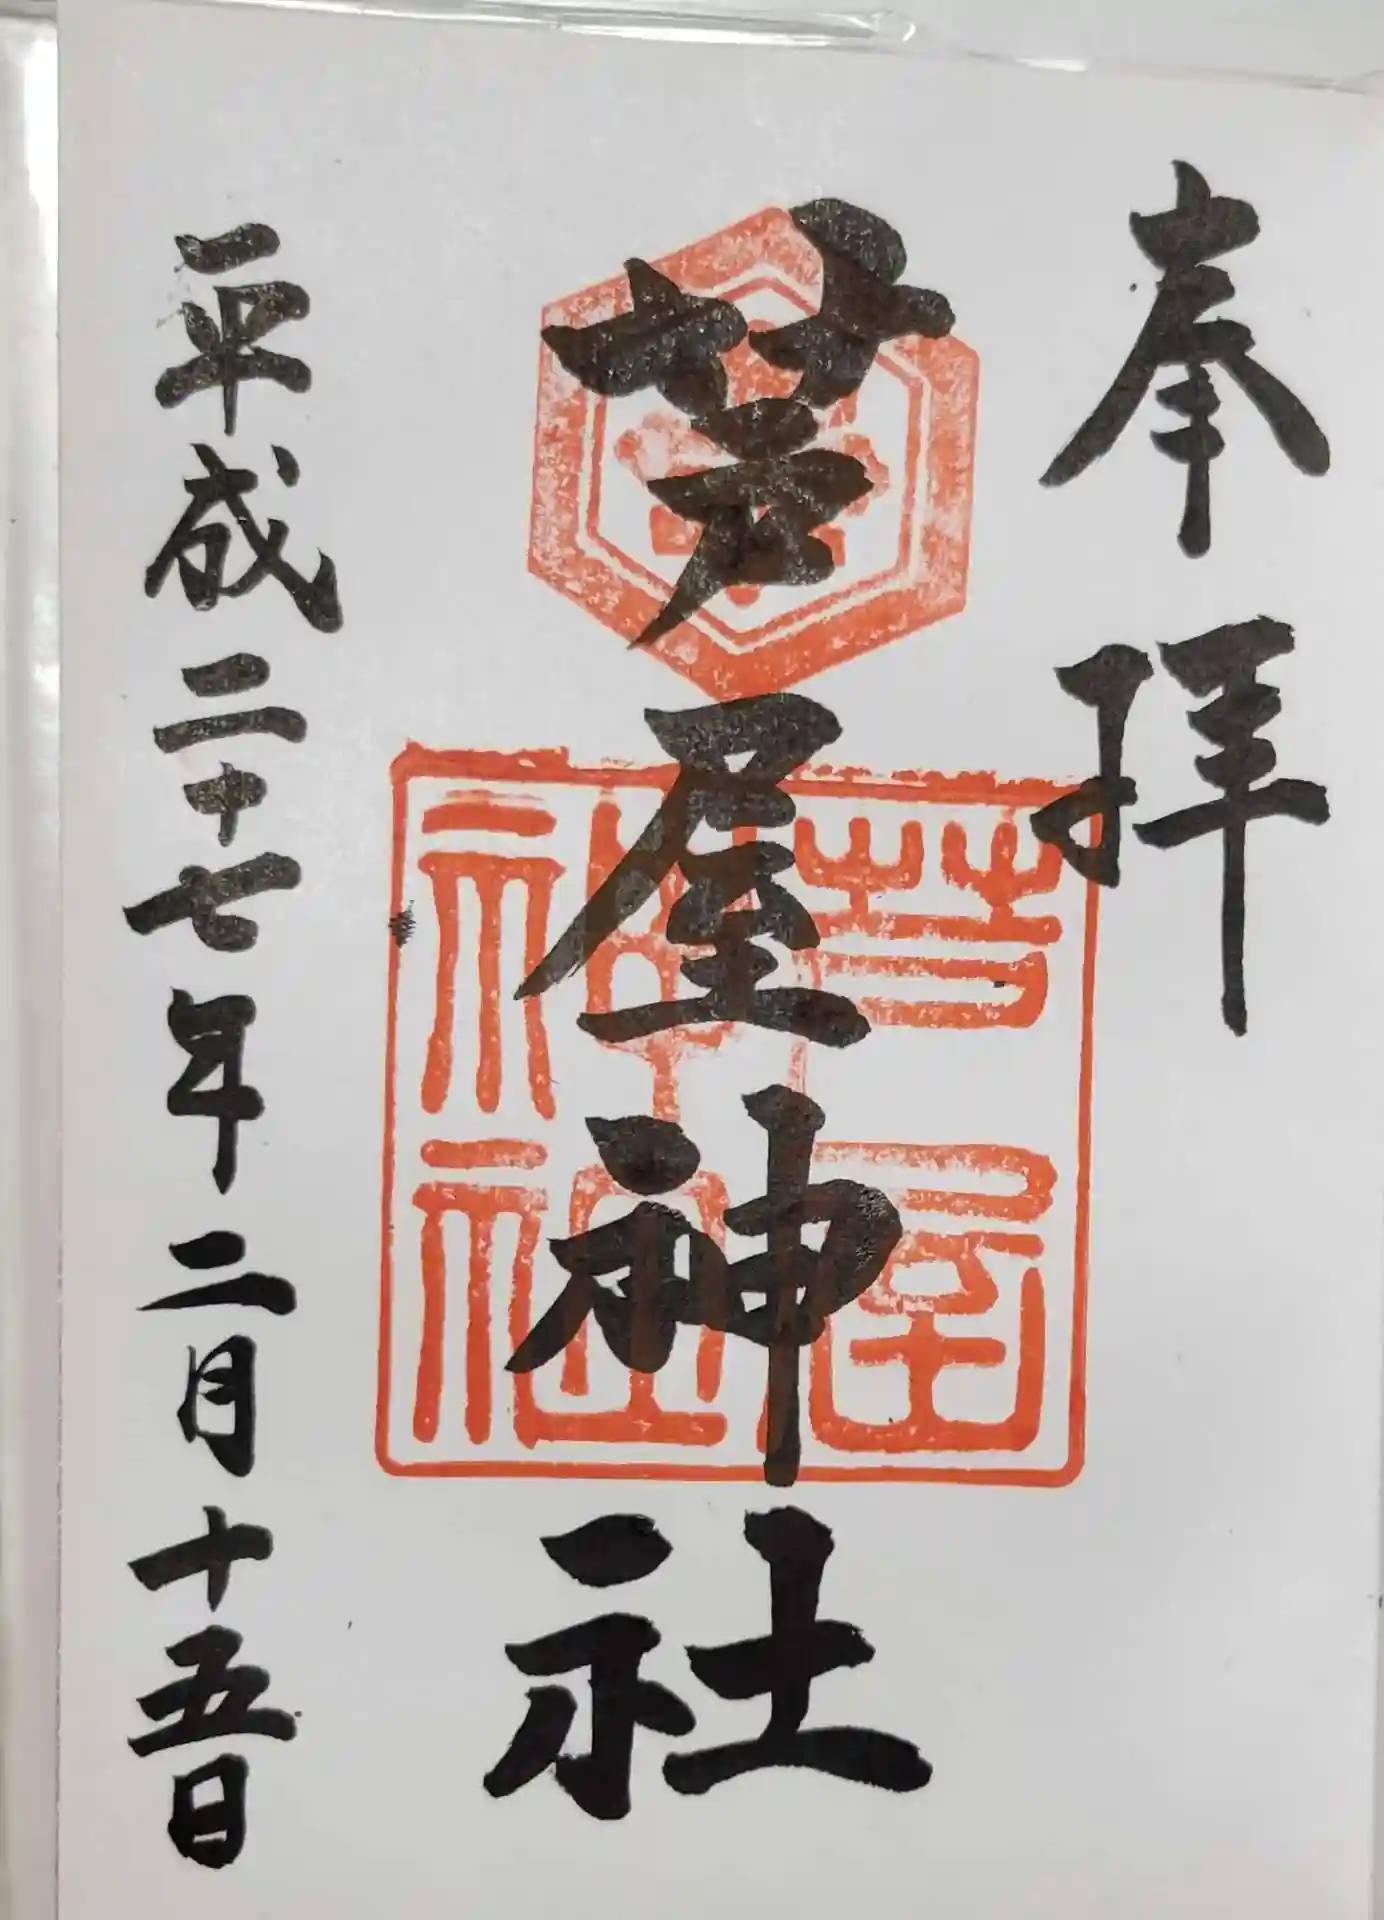 奉拝
芦屋神社
芦屋
神社
平成二十七年二月十五日